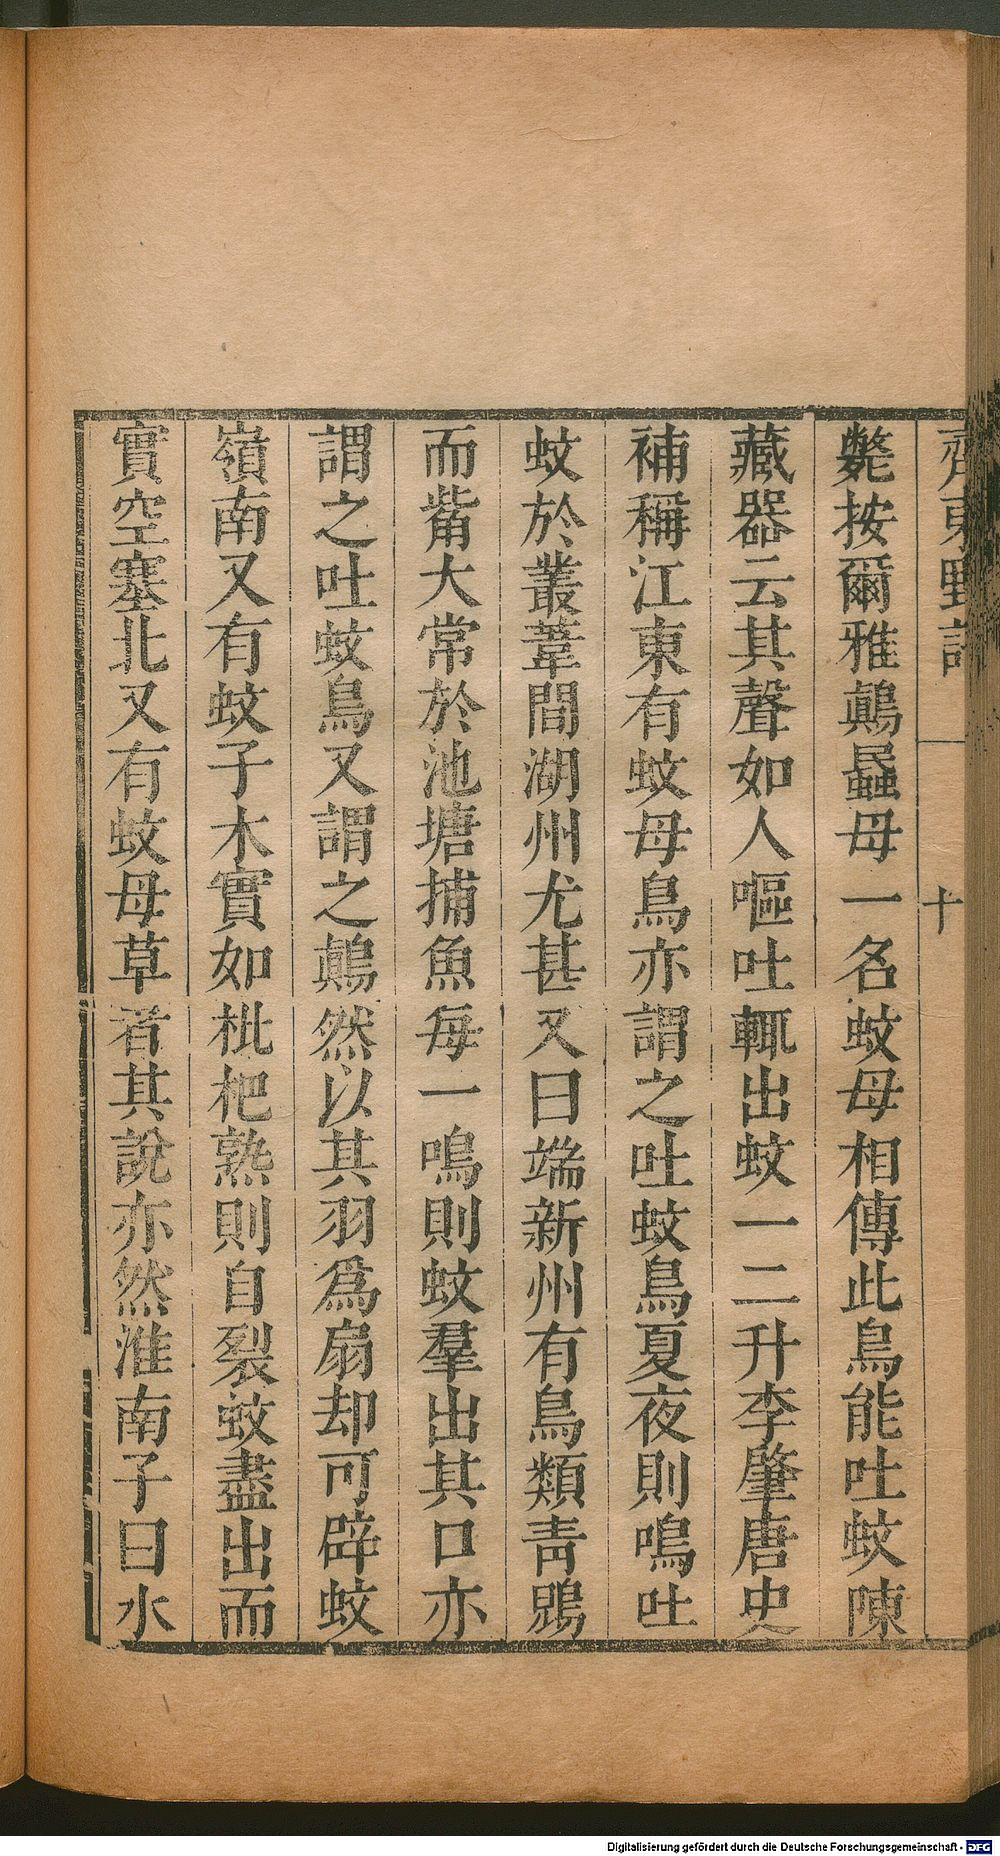 齊東野語 十
斃按爾雅鷏蟁母一名蚊母相傳此鳥能吐蚊陳
藏器云其聲如人嘔吐輒出蚊一二升李肇唐史
補稱江東有蚊母鳥亦謂之吐蚊鳥夏夜則鳴吐
蚊於叢葦間湖州尤甚又曰端新州有鳥類靑鵶
而觜大常於池塘捕魚每一鳴則蚊羣出其口亦
謂之吐蚊鳥又謂之鷏然以其羽爲扇却可辟蚊
嶺南又有蚊子木實如枇杷熟則自裂蚊盡出而
實空塞北又有蚊母草者其說亦然淮南子曰水
Digitalisierung gefördert durch die Deutsche Forschungsgemeinschaft - DFG